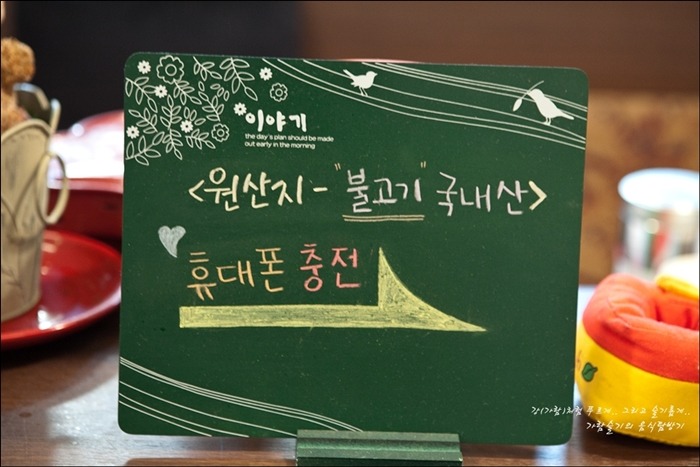 이야기
the day's plan should be made
out early in the morning
<원산지 - "불고기" 국내산>
휴대폰 충전
강(가람)처럼 푸르게.. 그리고 슬기롭게..
가람슬기의 음식탐방기